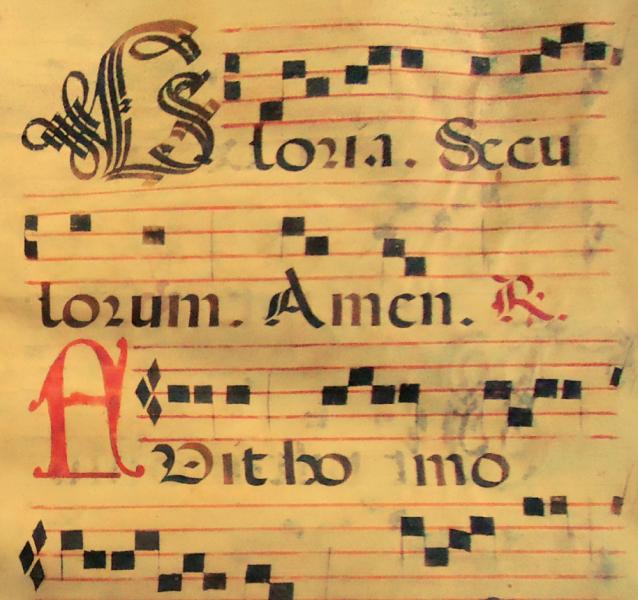 Gloria. Secu
lorum. Amen. R.
ADitho mo